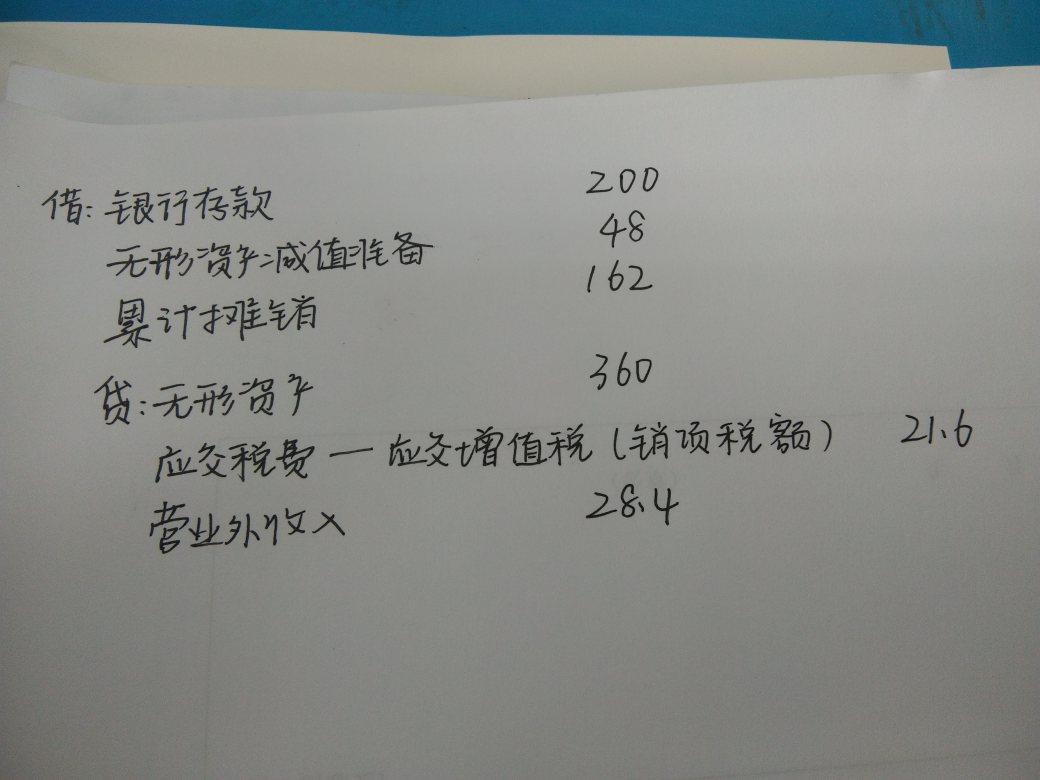 借：银行存款 200
无形资产减值准备 48
累计摊销 162
贷：无形资产 360
应交税费—应交增值税（销项税额） 21.6
营业外收入 28.4